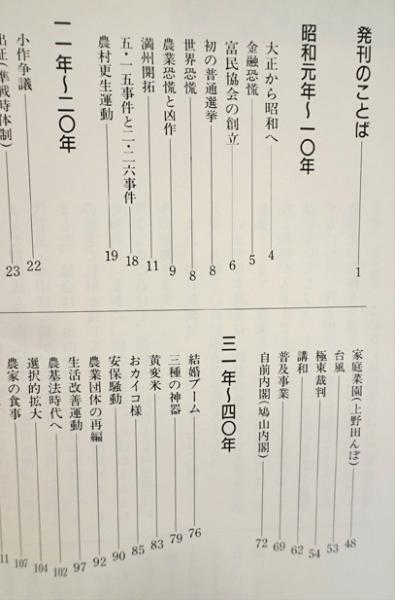 発刊のことば 1
昭和元年〜一〇年
大正から昭和へ 4
金融恐慌 5
富民協会の創立 6
初の普通選挙 8
世界恐慌 8
農業恐慌と凶作 9
満州開拓 11
五・一五事件と二・二六事件 18
農村更生運動 19
一一年〜二〇年
小作争議 22
出征(準戦時体制) 23
家庭菜園(上野田んぼ) 48
台風 53
極東裁判 54
講和 62
普及事業 69
自前内閣(鳩山内閣) 72
三一年〜四〇年
結婚ブーム 76
三種の神器 79
黄変米 83
おカイコ様 85
安保騒動 90
農業団体の再編 92
生活改善運動 97
農基法時代へ 102
選択的拡大 104
農家の食事 107